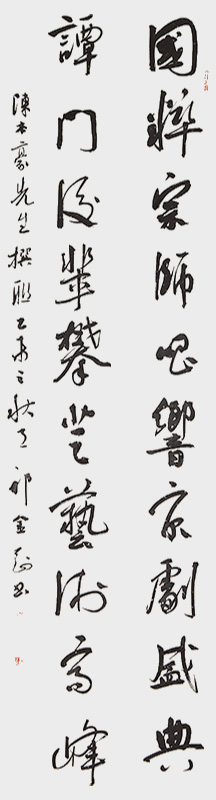 國粹宗師唱響京劇盛典
譚門後輩攀登藝術高峰
陳本豪先生撰聯己亥之秋月祁金剛書